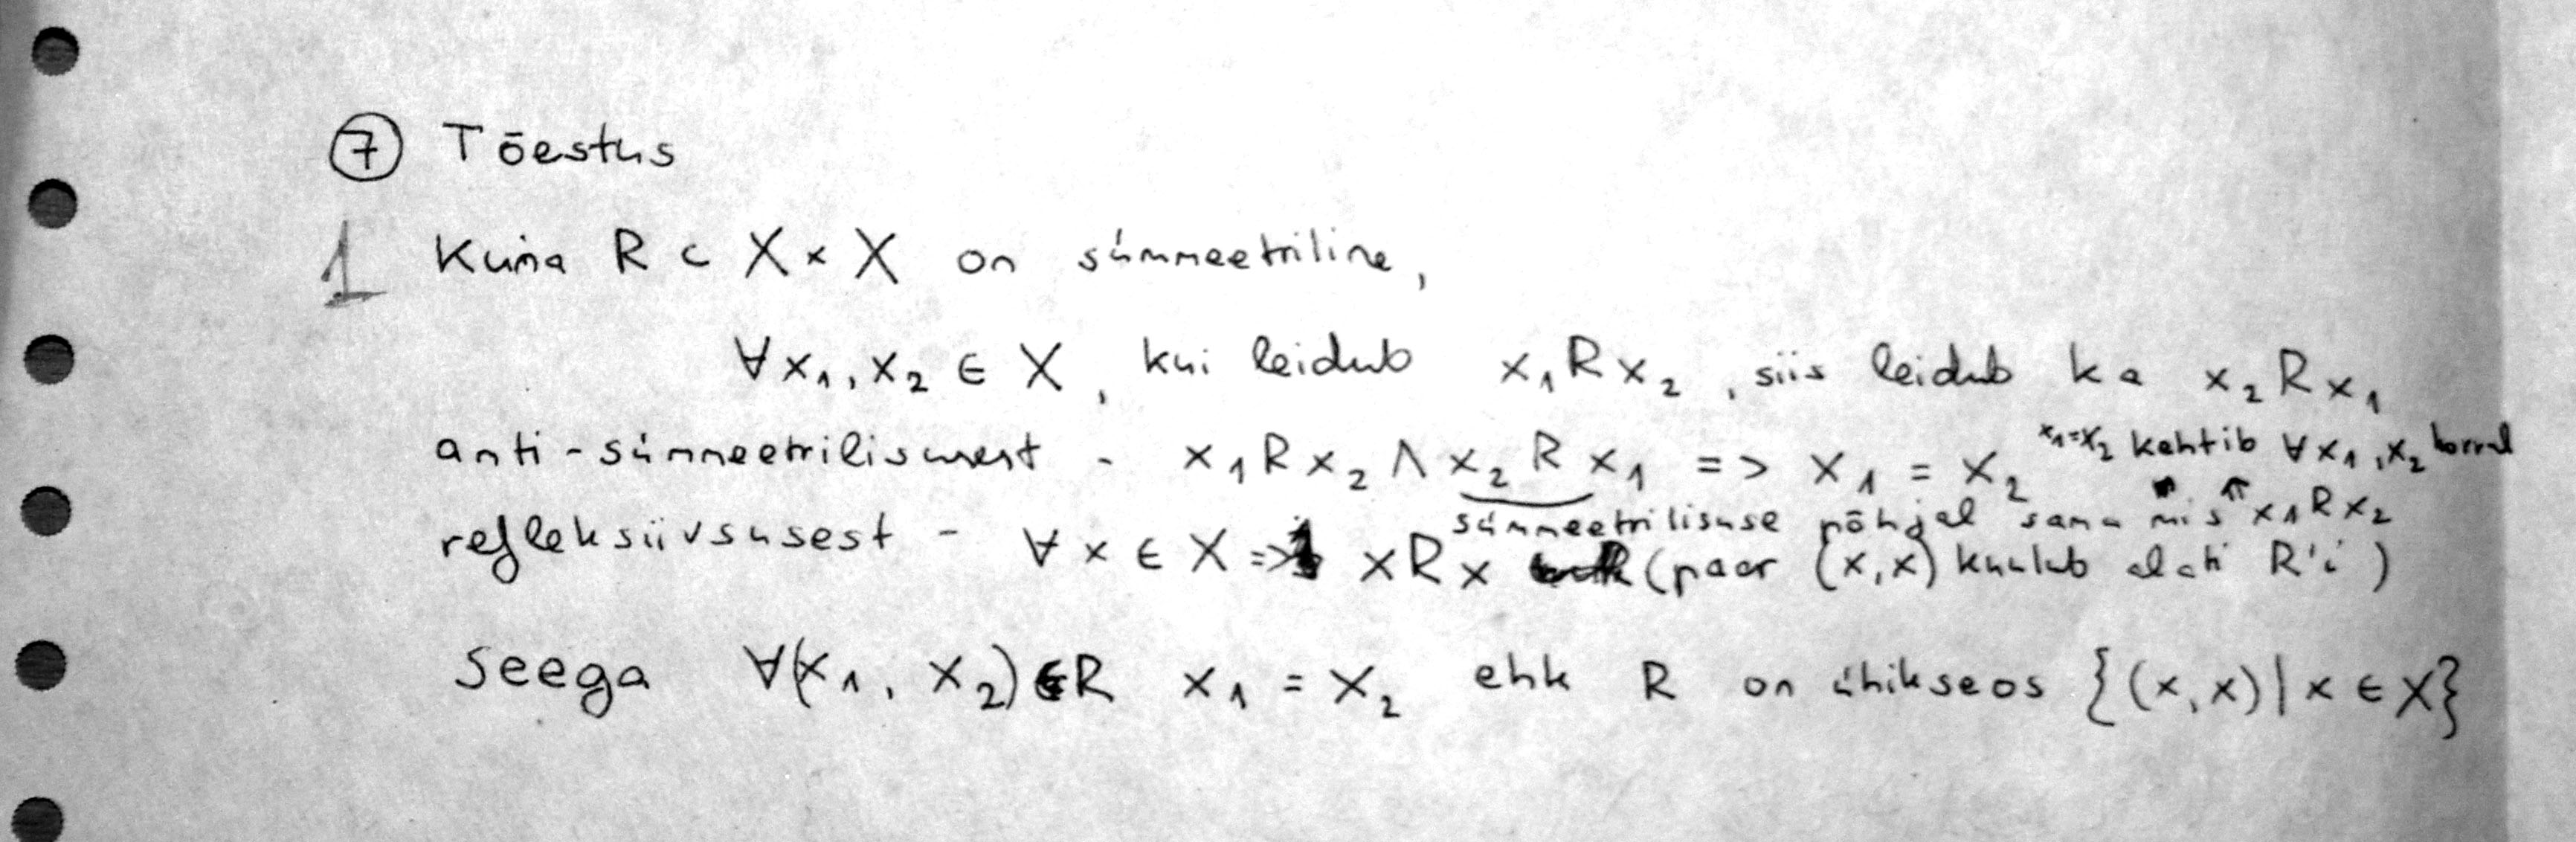 7 Tõestus
1 Kuna R ⊂ X × X on sümmeetriline,
∀x₁, x₂ ∈ X, kui leidub x₁Rx₂, siis leidub ka x₂Rx₁
x₁=x₂ kehtib ∀x₁, x₂ korral
anti-sümmeetrilisusest - x₁Rx₂ ∧ x₂Rx₁ => x₁ = x₂
sümmeetrilisuse põhjal sama mis x₁Rx₂
refleksiivsusest - ∀x ∈ X => xRx (paar (x,x) kuulub alati R'i)
Seega ∀(x₁, x₂) ∈ R x₁ = x₂ ehk R on ühikseos {(x,x) | x ∈ X}